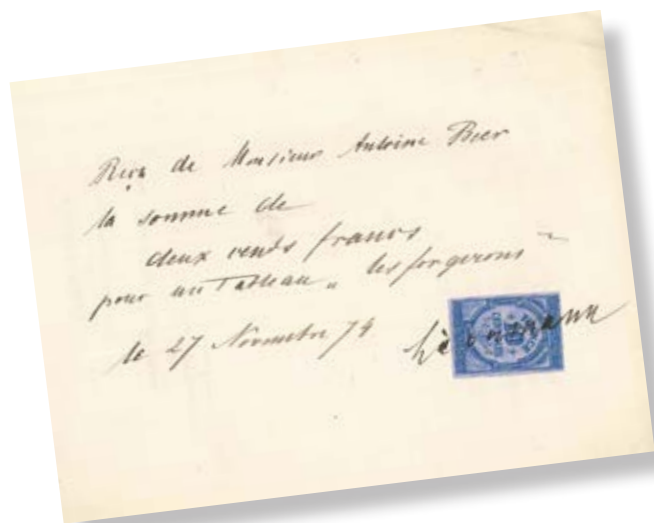 Reçu de Monsieur Antoine Beer
la somme de
deux cents francs
pour un Tableau „ les forgerons "
le 27 Novembre 74